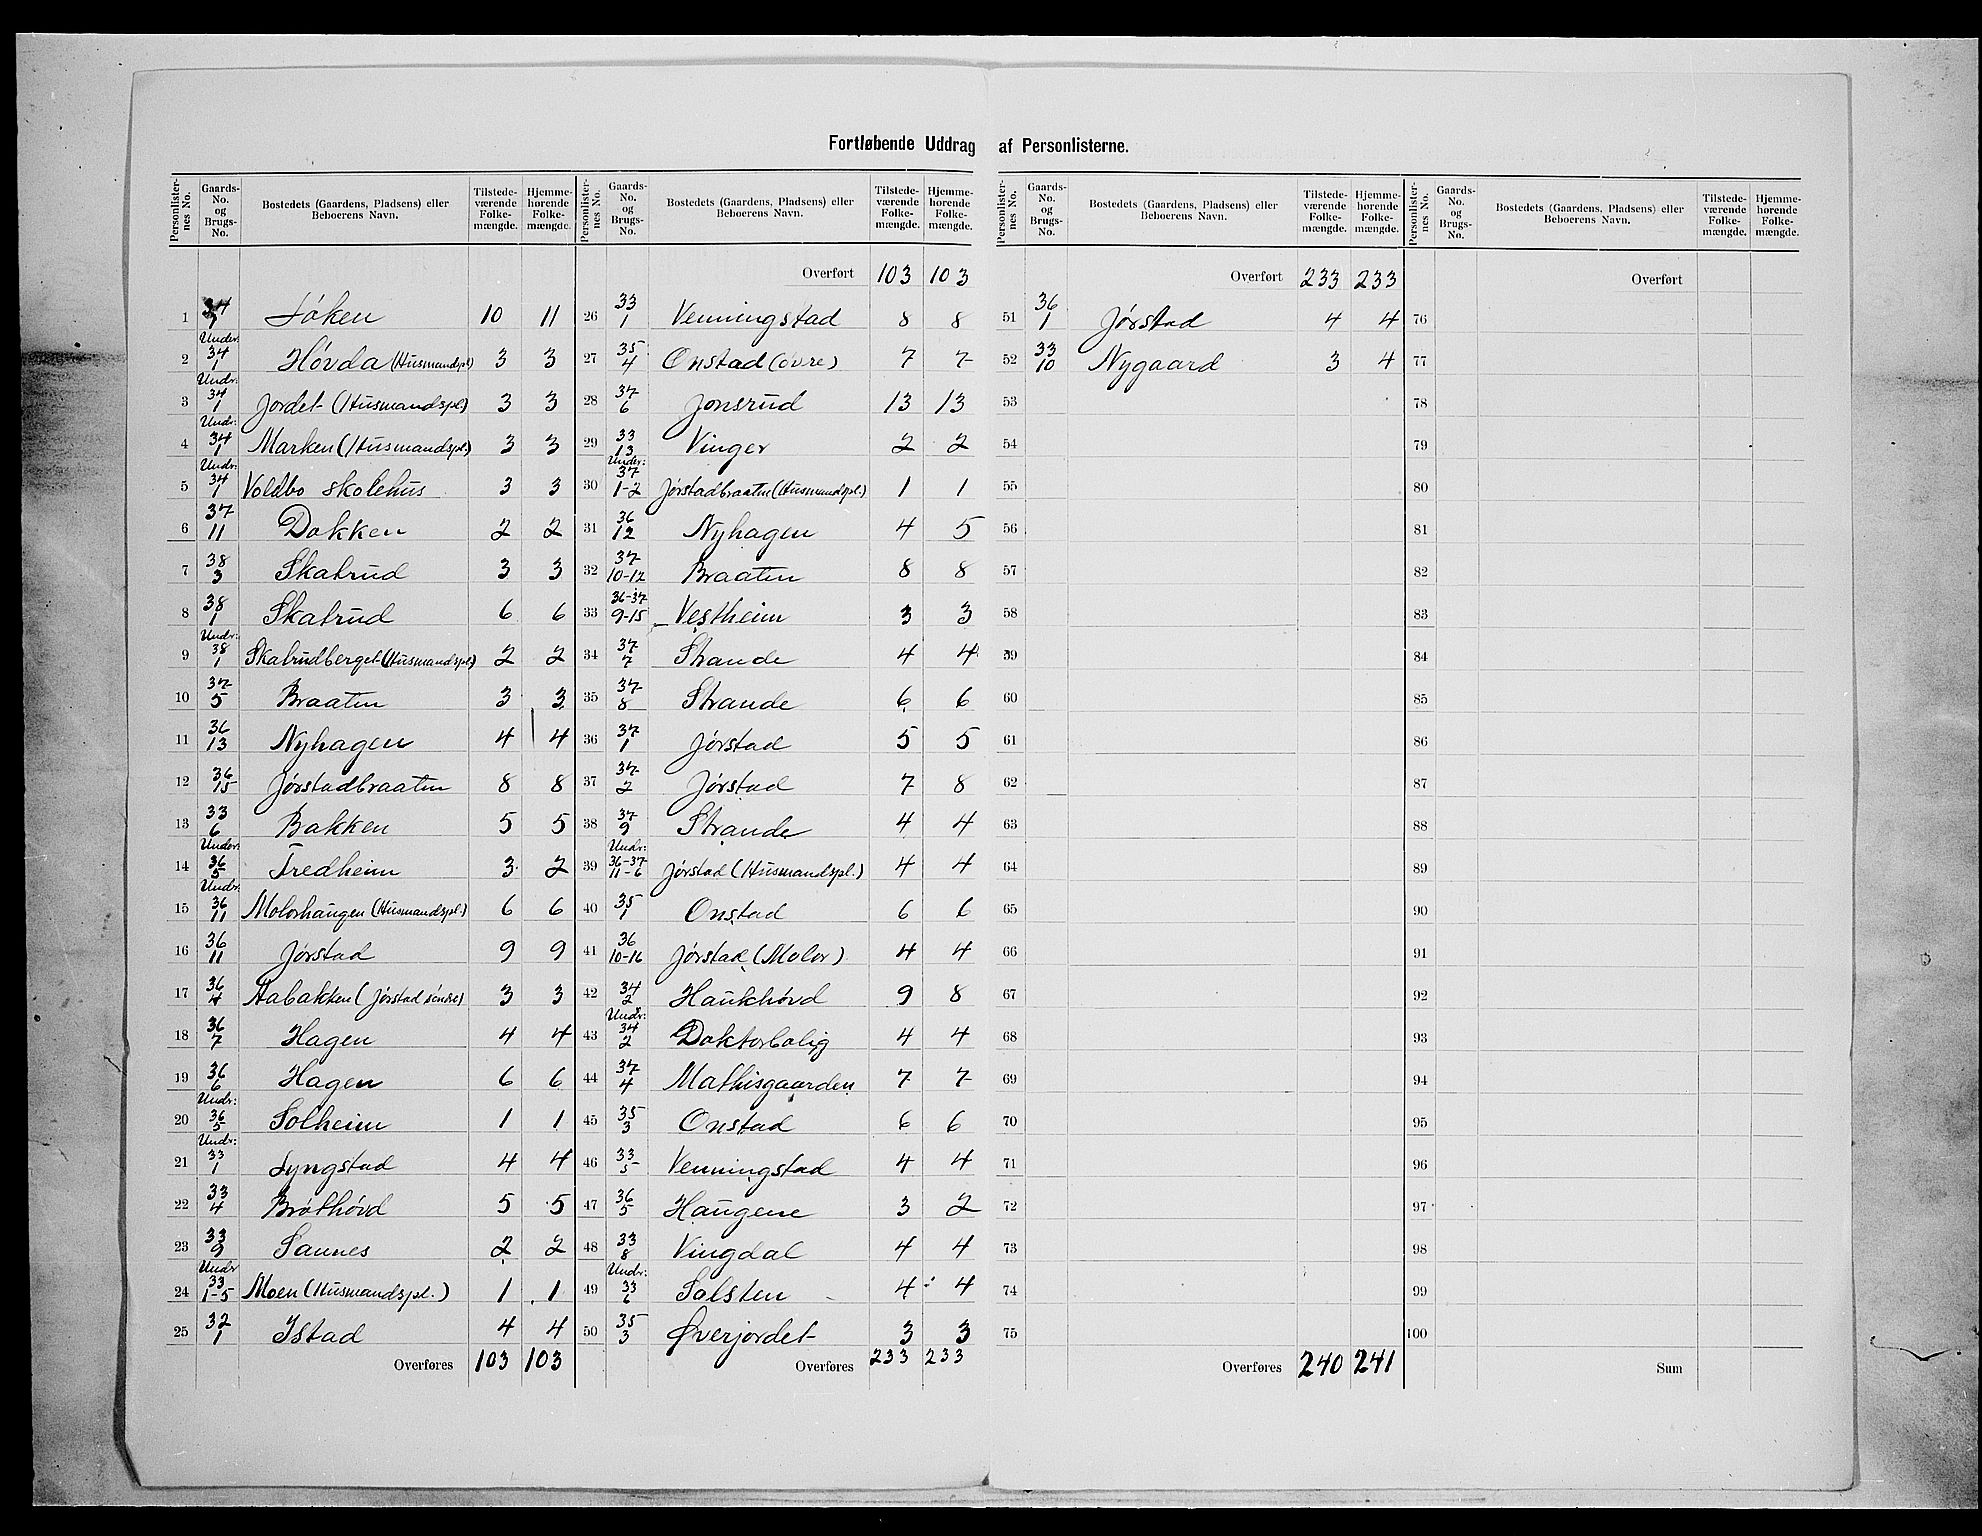 Fortløbende Uddrag af Personlisterne.
Personlister-nes No. | Gaards-No. og Brugs-No. | Bostedets (Gaardens, Pladsens) eller Beboerens Navn. | Tilstede-værende Folke-mængde. | Hjemme-hørende Folke-mængde.
1 34/1 Løken 10 11
2 Under: 34/1 Høvda (Husmandspl) 3 3
3 Undr: 34/1 Jordet (Husmandspl) 3 3
4 Undr: 34/1 Marken (Husmandspl.) 3 3
5 Undr: 34/1 Voldbo skolehus 3 3
6 37/11 Dokken 2 2
7 38/3 Skatrud 3 3
8 38/1 Skatrud 6 6
9 Undr: 38/1 Skatrudberget (Husmandspl) 2 2
10 37/5 Braaten 3 3
11 36/13 Nyhagen 4 4
12 36/15 Jørstadbraaten 8 8
13 33/6 Bakken 5 5
14 Under: 36/5 Fredheim 3 2
15 Undr: 36/11 Molorhaugen (Husmandspl.) 6 6
16 36/11 Jørstad 9 9
17 36/4 Aabakken (Jørstad søndre) 3 3
18 36/7 Hagen 4 4
19 36/6 Hagen 6 6
20 Undr: 36/5 Solheim 1 1
21 Undr: 33/1 Lyngstad 4 4
22 33/4 Brøthøvd 5 5
23 33/9 Sannes 2 2
24 Undr 33/1-5 Moen (Husmandspl.) 1 1
25 32/1 Istad 4 4
Overføres 103 103
Personlister-nes No. | Gaards-No. og Brugs-No. | Bostedets (Gaardens, Pladsens) eller Beboerens Navn. | Tilstede-værende Folke-mængde. | Hjemme-hørende Folke-mængde.
Overført 103 103
26 33/1 Venningstad 8 8
27 35/4 Onstad (øvre) 7 7
28 37/6 Jonsrud 13 13
29 33/13 Vinger 2 2
30 Under: 37/1-2 Jørstadbraaten (Husmandspl.) 1 1
31 36/12 Nyhagen 4 5
32 37/10-12 Braaten 8 8
33 36-37/9-15 Vestheim 3 3
34 37/7 Strande 4 4
35 37/8 Strande 6 6
36 37/1 Jørstad 5 5
37 37/2 Jørstad 7 8
38 37/9 Strande 4 4
39 Undr: 36-37/11-6 Jørstad (Husmandspl.) 4 4
40 35/1 Onstad 6 6
41 36/10-16 Jørstad (Molor) 4 4
42 34/2 Haukhøvd 9 8
43 Undr: 34/2 Doktorbolig 4 4
44 37/4 Mathisgaarden 7 7
45 35/3 Onstad 6 6
46 33/5 Venningstad 4 4
47 36/5 Haugene 3 2
48 33/8 Vingdal 4 4
49 Undr: 33/6 Solsten 4 4
50 35/3 Øverjordet 3 3
Overføres 233 233
Personlister-nes No. | Gaards-No. og Brugs-No. | Bostedets (Gaardens, Pladsens) eller Beboerens Navn. | Tilstede-værende Folke-mængde. | Hjemme-hørende Folke-mængde.
Overført 233 233
51 36/1 Jørstad 4 4
52 33/10 Nygaard 3 4
53
54
55
56
57
58
59
60
61
62
63
64
65
66
67
68
69
70
71
72
73
74
75
Overføres 240 241
Personlister-nes No. | Gaards-No. og Brugs-No. | Bostedets (Gaardens, Pladsens) eller Beboerens Navn. | Tilstede-værende Folke-mængde. | Hjemme-hørende Folke-mængde.
Overført
76
77
78
79
80
81
82
83
84
85
86
87
88
89
90
91
92
93
94
95
96
97
98
99
100
Sum